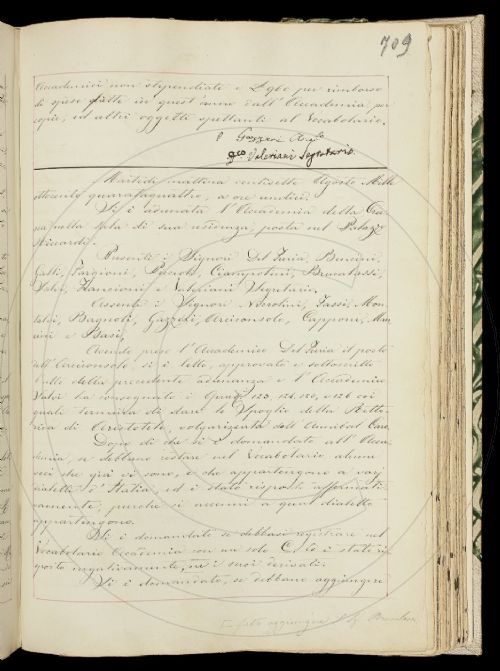 709
Accademici non stipendiati e L 960 per rimborso
di spese fatte in quest'anno dall'Accademia per
copie, ed altri oggetti spettanti al Vocabolario.
Gazzeri
Valeriani Segretario.
Martedì mattina ventisette Agosto Mille
ottocento quarantaquattro, a ore undici.
Si è adunata l'Accademia della Crus
ca nella sala di sua residenza posta nel Palazzo
Riccardi.
Presenti i Signori Del Furia, Bencini,
Gatti, Targioni, Ciampolini, Brucalassi,
Valeriani Segretario.
Assenti i Signori Niccolini, Tassi, Mon
talvi, Bagnoli, Gazzeri Arciconsolo, Capponi, Man
nini e Basi,
Avendo preso l'Accademico Del Furia il posto
dell'Arciconsolo, si è letto, approvato e sottoscritto
l'atto della precedente adunanza e l'Accademico
ha consegnato i Quad. 123, 124, 125, e 126 coi
quali termina di dare lo Spoglio della Retto
rica di Aristotele, volgarizzata dall'Annibal Caro.
Dopo di che si è domandato all'Acca
demia, se debbano restare nel Vocabolario alcune
voci che già vi sono, e che appartengono a varj
dialetti d'Italia, ed è stato risposto affermati
vamente, purchè si accenni a qual dialetto
appartengono.
Si è domandato se debbasi registrare nel
Vocabolario Accademia con un solo C. Ed è stato ris
posto negativamente, nè i suoi derivati.
Si è domandato, se debbano aggiungere